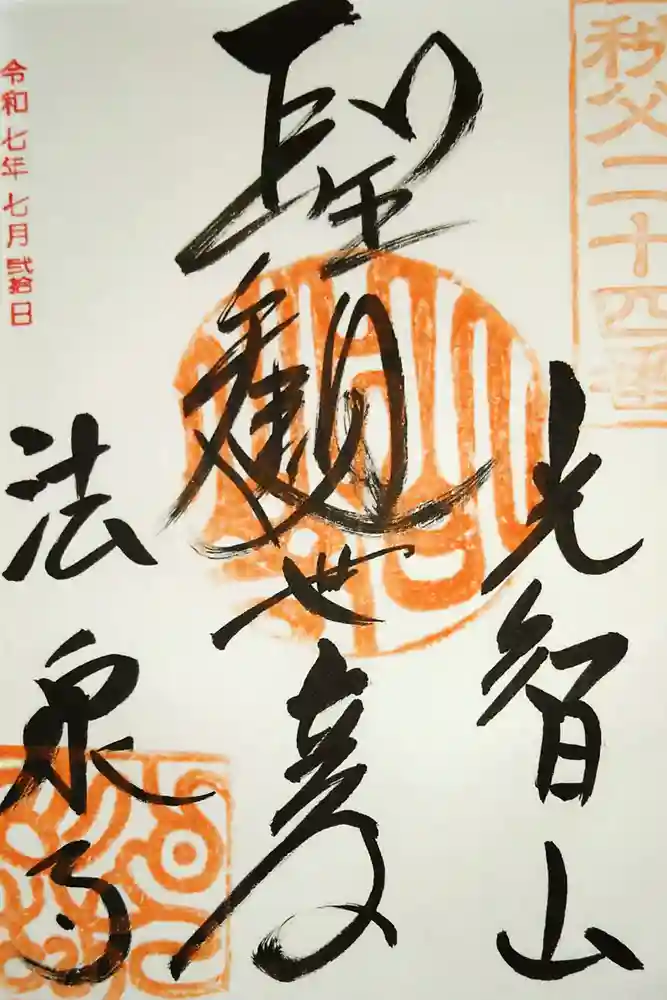 秩父二十四番
光智山
聖観世音
法泉寺
令和七年七月弐拾日